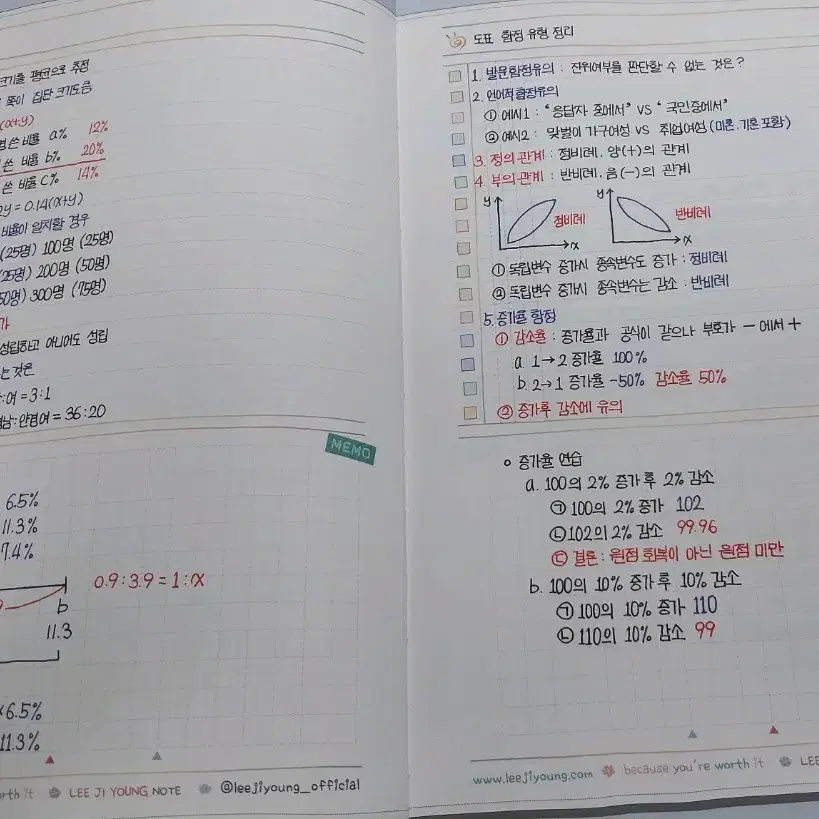 크기를 평균으로 추정
쪽이 집단 크기도큼
(α+y)
쓴 비율 a% 12%
쓴 비율 b% 20%
쓴 비율 C% 14%
2y = 0.14(α+y)
비율이 일치할 경우
(25명) 100명 (25명)
(25명) 200명 (50명)
50명) 300명 (75명)
가
성립하고 아니어도 성립
는것은
:여 = 3:1
경남:안경여 = 36:20
MEMO
6.5%
11.3%
7.4%
0.9:3.9 = 1:α
b
11.3
×6.5%
11.3%
rth it LEE JI YOUNG NOTE @leejiyoung_official
도표 함정 유형 정리
1. 발문함정유의 : 진위여부를 판단할 수 없는 것은?
2. 언어적 함정유의
① 예시1 : "응답자 중에서" VS "국민중에서"
② 예시2 : 맞벌이 가구여성 VS 취업여성 (미혼.기혼 포함)
3. 정의 관계 : 정비례. 양(+)의 관계
4. 부의 관계 : 반비례. 음(-)의 관계
y 정비례 α
y 반비례 α
① 독립변수 증가시 종속변수도 증가 : 정비례
② 독립변수 증가시 종속변수는 감소 : 반비례
5. 증가율 함정
① 감소율 : 증가율과 공식이 같으나 부호가 - 에서 +
a. 1→2 증가율 100%
b. 2→1 증가율 -50% 감소율 50%
② 증가후 감소에 유의
○ 증가율 연습
a. 100의 2% 증가 후 2% 감소
㉠ 100의 2% 증가 102
㉡ 102의 2% 감소 99.96
㉢ 결론 : 원점 회복이 아닌 원점 미만
b. 100의 10% 증가후 10% 감소
㉠ 100의 10% 증가 110
㉡ 110의 10% 감소 99
www.leejiyoung.com because you're worth it LEE